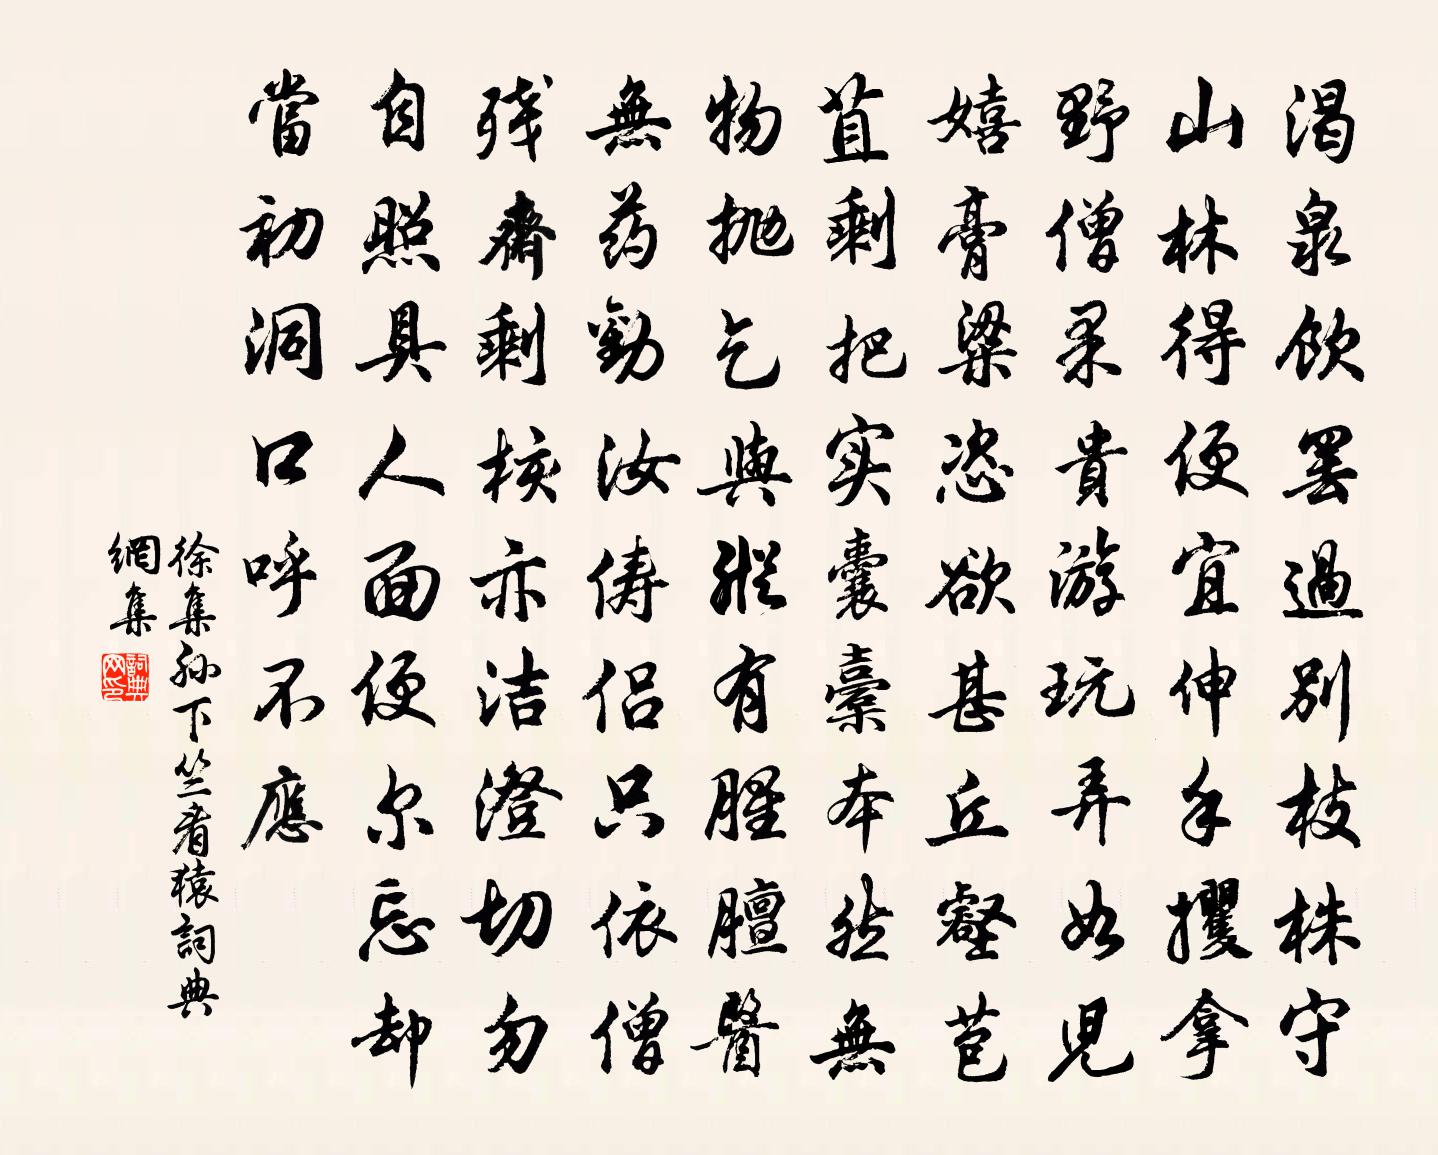 渴泉飲罢過别枝株守
山林得便宜伸手攫拿
野僧柔貴游玩弄如児
嬉膏粱恣欲甚丘壑苞
苴剩把实囊橐本然無
物抛乞與縱有腥膻醫
無药勸汝俦侣只依僧
残齋剩核亦洁澄切勿
自照具人面便尔忘却
當初洞口呼不應
徐集孙下竺看猿詞典
網集
詞典网印